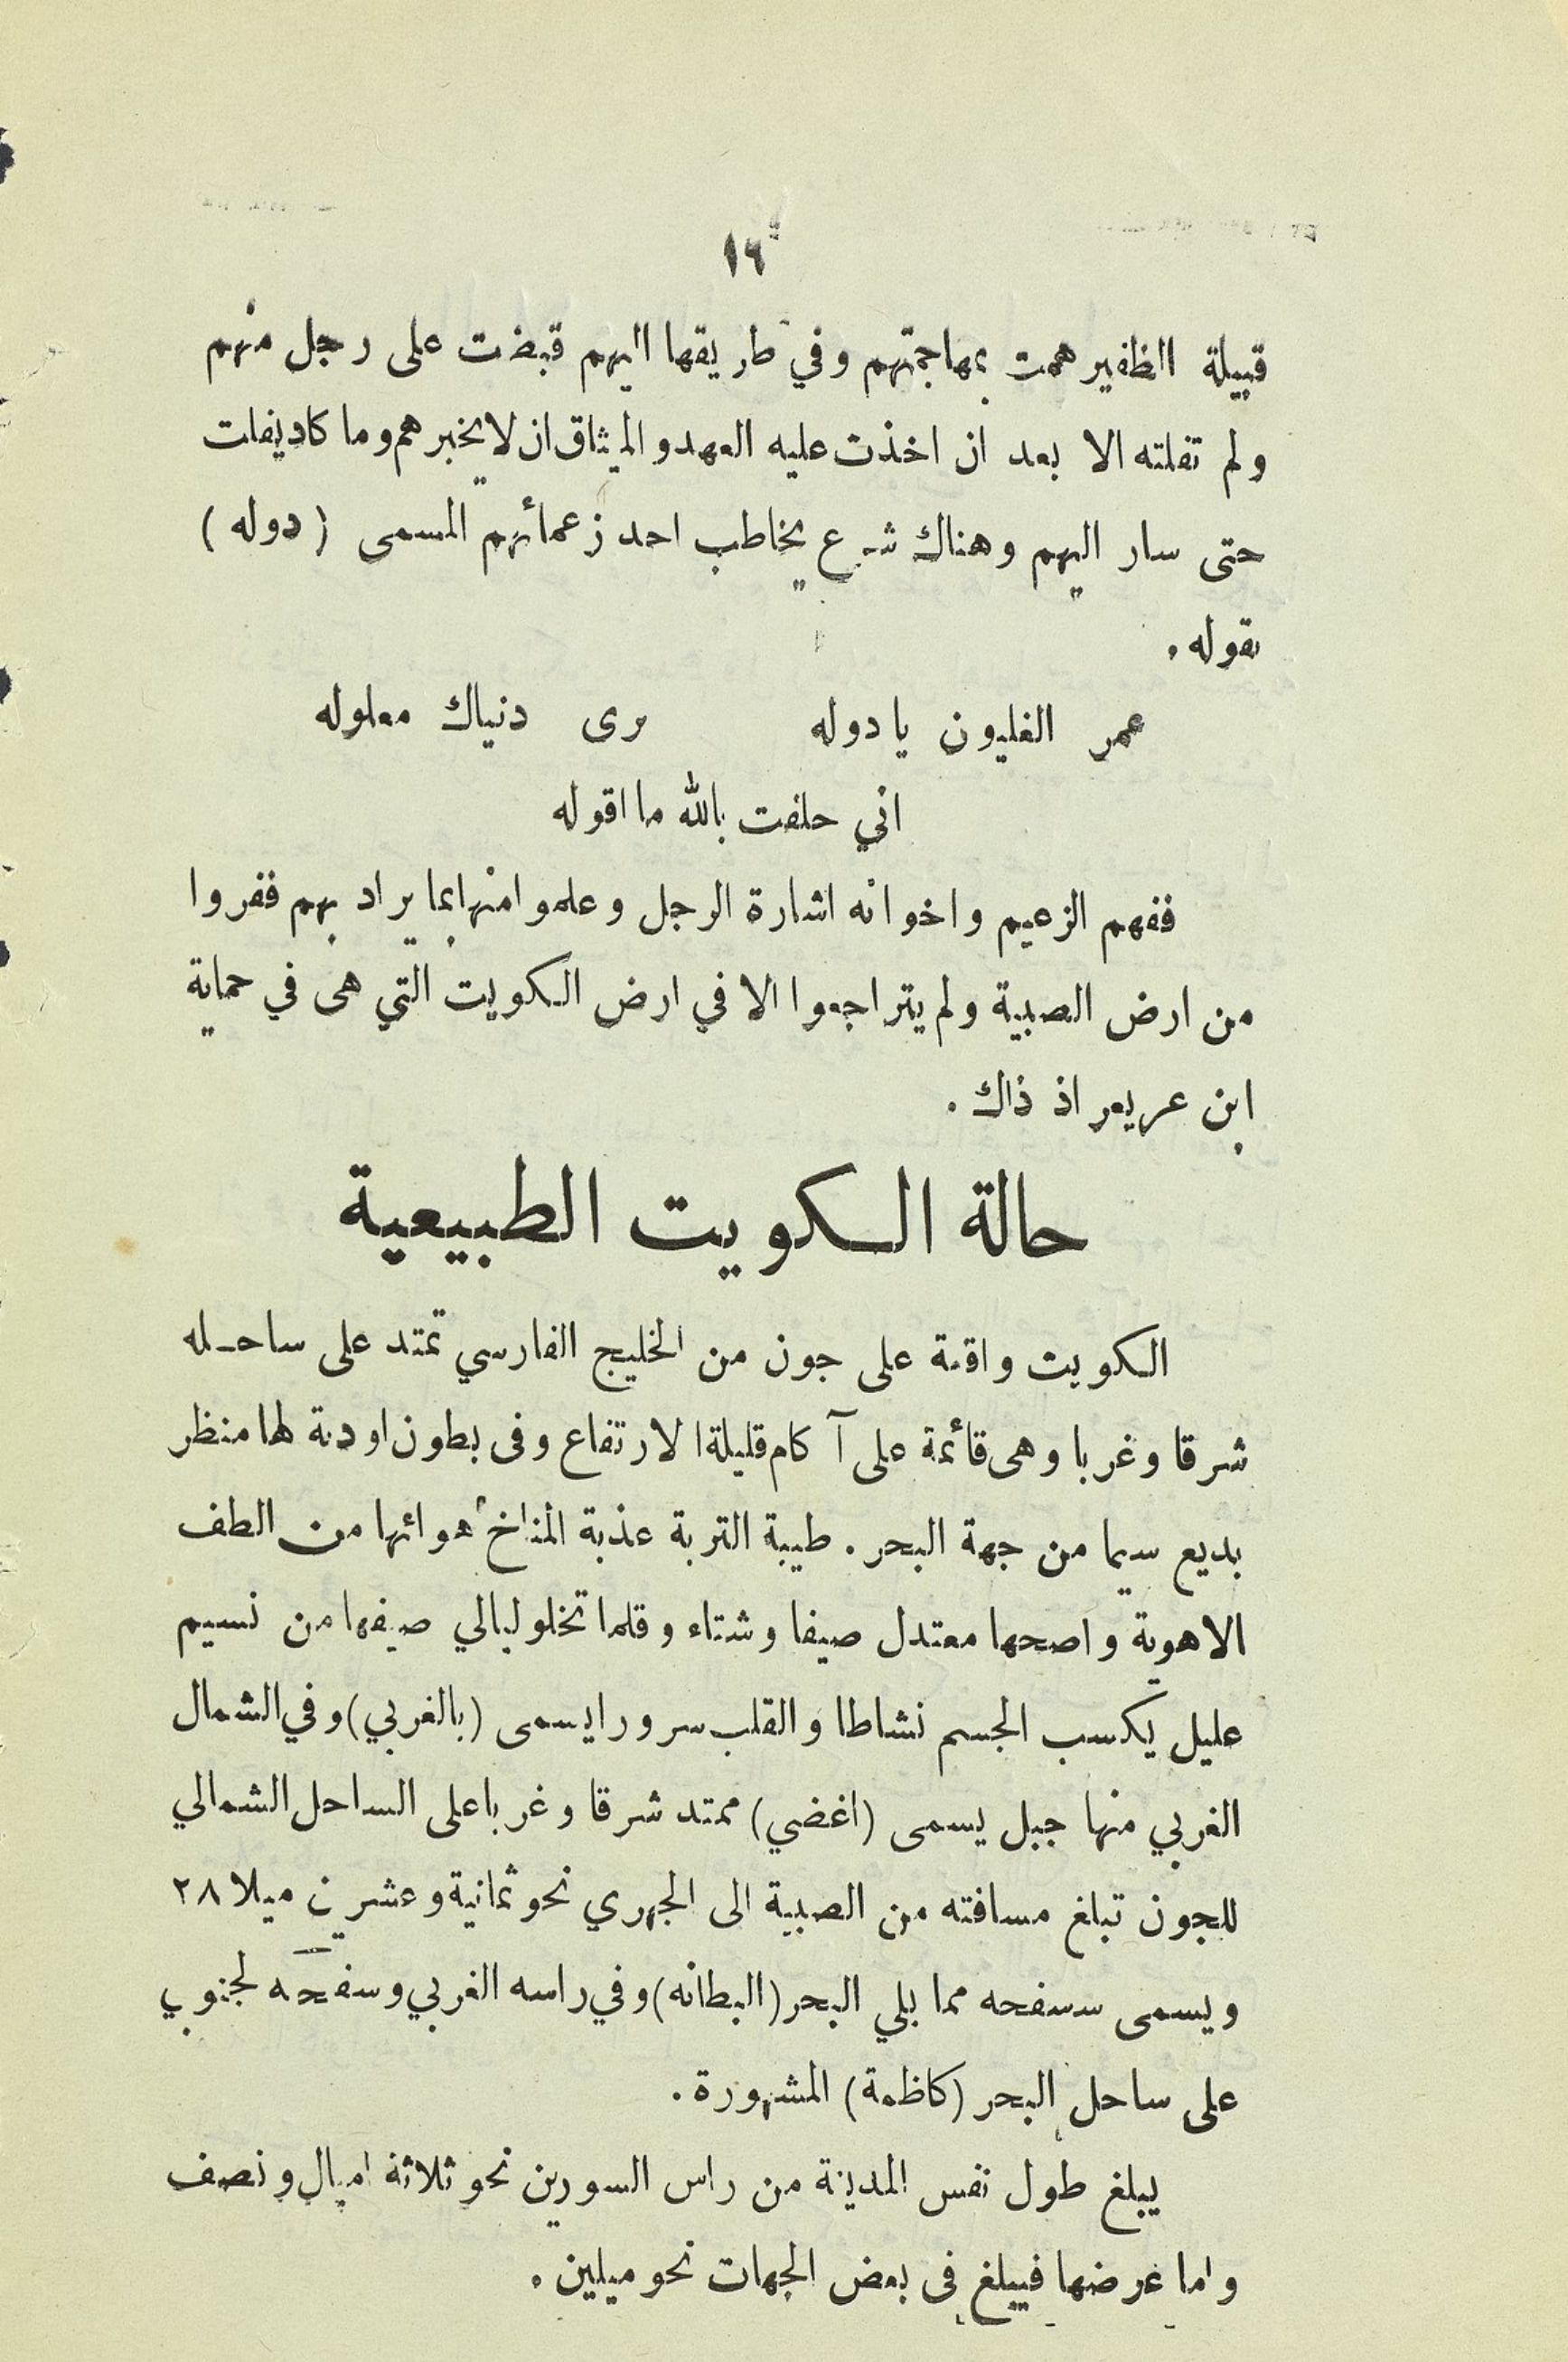 ١٦
قبيلة الظفير همت بمهاجمتهم وفي طريقها اليهم قبضت على رجل منهم
ولم تفلته الا بعد ان اخذت عليه العهد والميثاق ان لا يخبرهم وما كاد يفلت
حتى سار اليهم وهناك شرع يخاطب احد زعمائهم المسمى (دوله)
بقوله .
عمر الغليون يا دوله برى دنياك معلوله
اني حلفت بالله ما اقوله
ففهم الزعيم واخوانه اشارة الرجل وعلموا منها بما يراد بهم ففروا
من ارض الصبية ولم يتراجعوا الا في ارض الكويت التي هى في حماية
ابن عريعر اذ ذاك .
حالة الكويت الطبيعية
الكويت واقعة على جون من الخليج الفارسي تمتد على ساحله
شرقا وغربا وهى قائمة على آكام قليلة الارتفاع وفى بطون اودية لها منظر
بديع سيما من جهة البحر . طيبة التربة عذبة المناخ هوائها من الطف
الاهوية واصحها معتدل صيفا وشتاء وقلما تخلو ليالي صيفها من نسيم
عليل يكسب الجسم نشاطا والقلب سرورا يسمى (بالغربي) وفي الشمال
الغربي منها جبل يسمى (اغضي) ممتد شرقا وغربا على الساحل الشمالي
للجون تبلغ مسافته من الصبية الى الجهري نحو ثمانية وعشرين ميلا ٢٨
ويسمى سسفحه مما يلي البحر (البطانه) وفي راسه الغربي وسفحه لجنوبي
على ساحل البحر (كاظمة) المشهورة .
يبلغ طول نفس المدينة من راس السورين نحو ثلاثة اميال ونصف
واما عرضها فيبلغ فى بعض الجهات نحو ميلين .